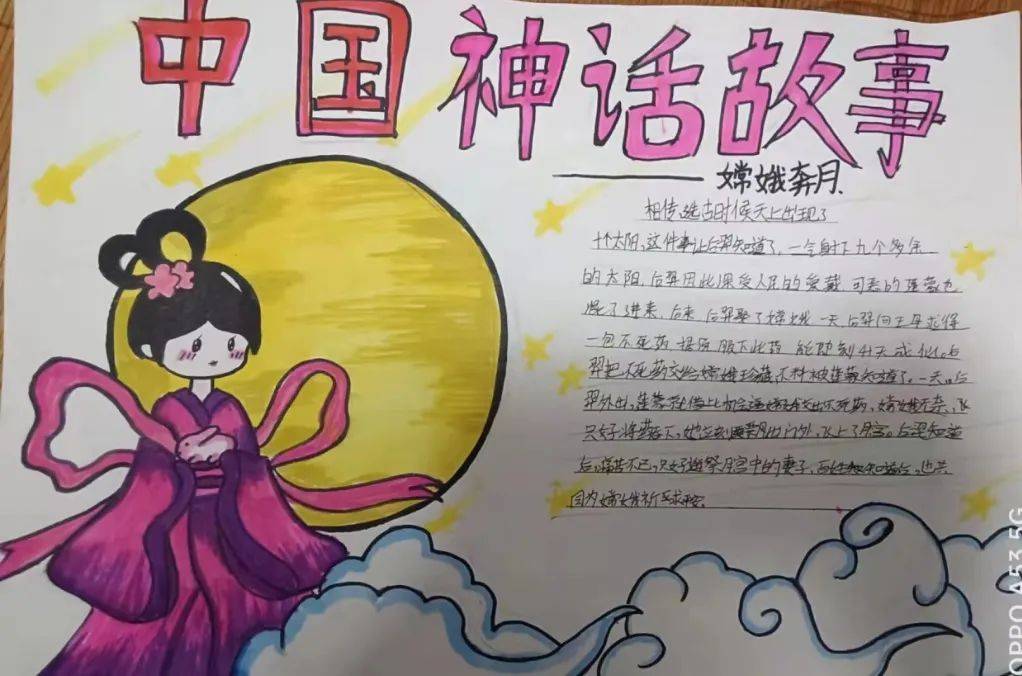 中国神话故事
——嫦娥奔月
相传,远古时候天上出现了
十个太阳,这件事让后羿知道了,一气射下九个多余
的太阳,后羿因此深受人民的爱戴,可恶的蓬蒙也
混了进来,后来,后羿娶了嫦娥一天后羿向王母求得
一包不死药,据说服下此药,能即刻升天成仙。后
羿把不死药交给嫦娥珍藏,不料被蓬蒙知道了。一天,后
羿外出,蓬蒙嫦娥交出不死药,嫦娥无奈,
只好将药吞下,她门外,飞上了月宫。后羿知道
后,痛苦不已,只好遥祭月宫中的妻子,百姓知道后,也共
同为嫦娥祈求
OPPO A53 5G